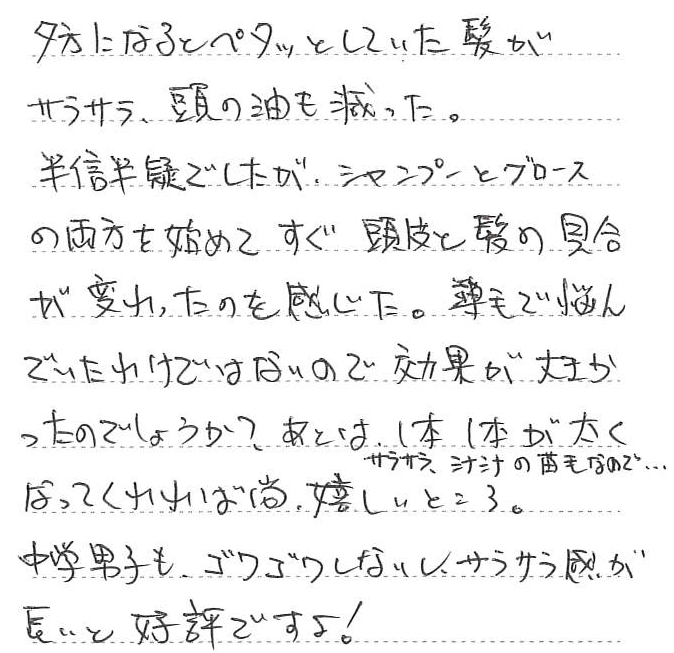 夕方になるとペタッとしていた髪が
サラサラ、頭の油も減った。
半信半疑でしたが、シャンプーとグロース
の両方を始めてすぐ頭皮と髪の具合
が変わったのを感じた。薄毛で悩ん
でいたわけではないので効果が大きか
ったのでしょうか?、あとは、1本1本が太く
サラサラ、ミナミナの苗毛なので…
なってくれれば尚、嬉しいところ。
中学男子も、ゴワゴワしないし、サラサラ感が
良いと好評ですよ!